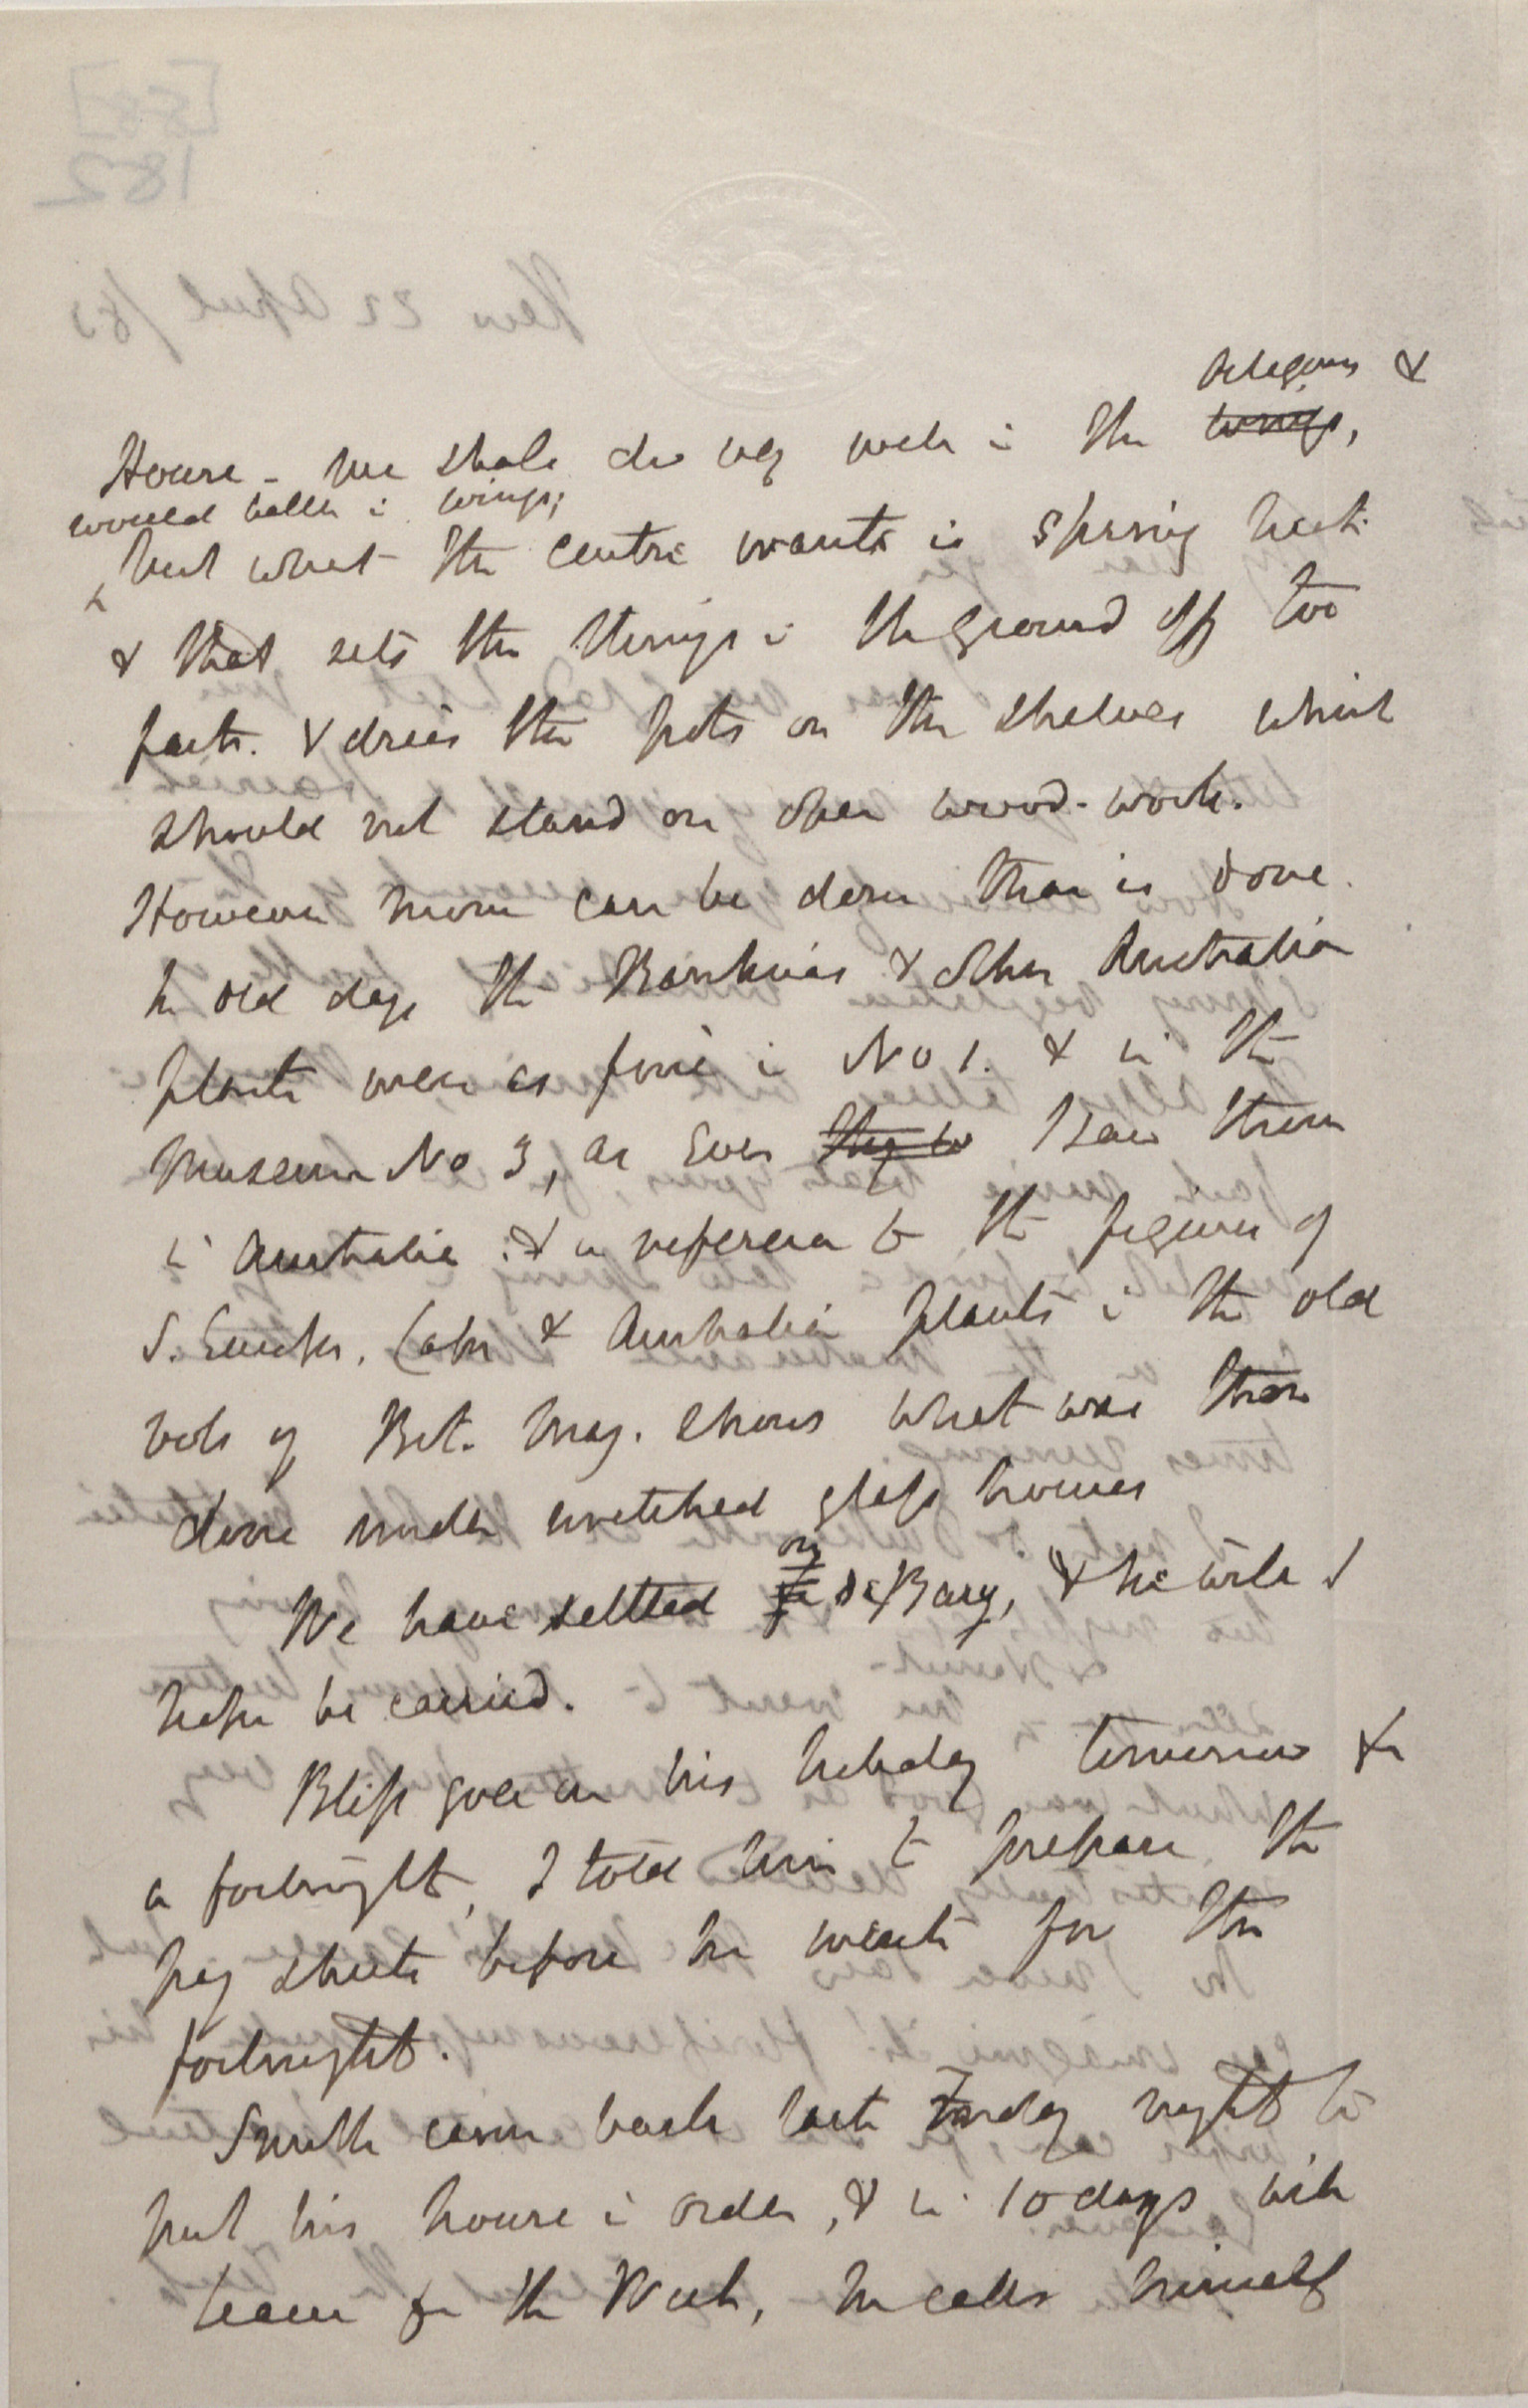 Octagons &
House – we shall do very well in the wings,
would better in wings;
but what the centre wants is spring heat
& that sets the things in the ground off too
fast. & dries the pots on the shelves which
should not stand on open wood-work.
However more can be done than is done.
In old days the Banksias & other Australian
plants were as fine in No 1. & in the
Museum No 3, as ever they w I saw them
in Australia : & a reference to the figures of
S. Euchs. Cape & Australian plants in the old
vols of Bot. Mag. shows what was then
done under wretched glass houses
on
We have settled fo de Bary, & he will I
hope be carried.
Bliss goes on his holiday tomorrow for
a fortnight, I told him to prepare the
pay sheets before he went for the
fortnight.
Smith came back last Friday night to
put his house in order, & in 10 days will
leave for the West, he calls himself